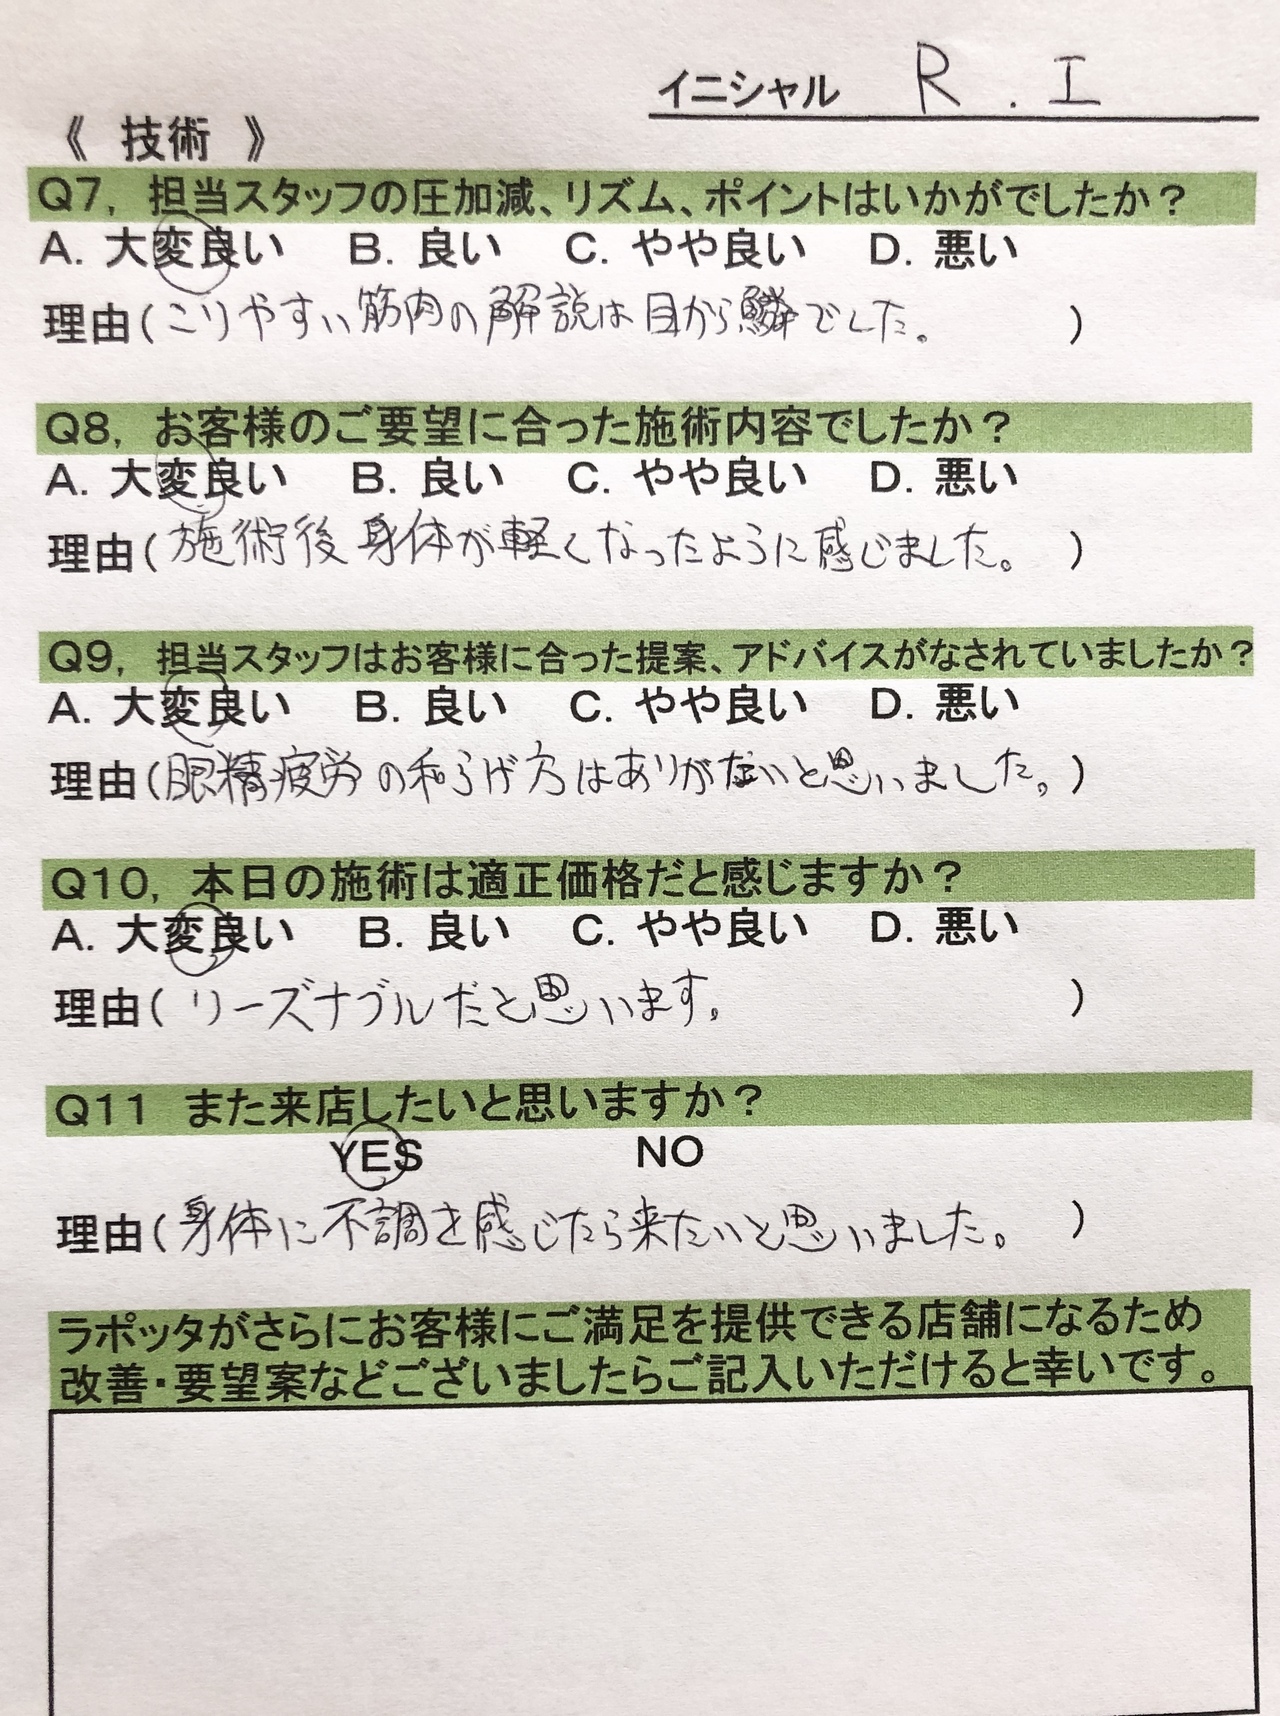 イニシャル R . I
《 技術 》
Q7, 担当スタッフの圧加減、リズム、ポイントはいかがでしたか?
A. 大変良い B. 良い C. やや良い D. 悪い
理由(こりやすい筋肉の解説は目から鱗でした。)
Q8, お客様のご要望に合った施術内容でしたか?
A. 大変良い B. 良い C. やや良い D. 悪い
理由(施術後身体が軽くなったように感じました。)
Q9, 担当スタッフはお客様に合った提案、アドバイスがなされていましたか?
A. 大変良い B. 良い C. やや良い D. 悪い
理由(眼精疲労の和らげ方はありがたいと思いました。)
Q10, 本日の施術は適正価格だと感じますか?
A. 大変良い B. 良い C. やや良い D. 悪い
理由(リーズナブルだと思います。)
Q11 また来店したいと思いますか?
YES NO
理由(身体に不調を感じたら来たいと思いました。)
ラポッタがさらにお客様にご満足を提供できる店舗になるため
改善・要望案などございましたらご記入いただけると幸いです。